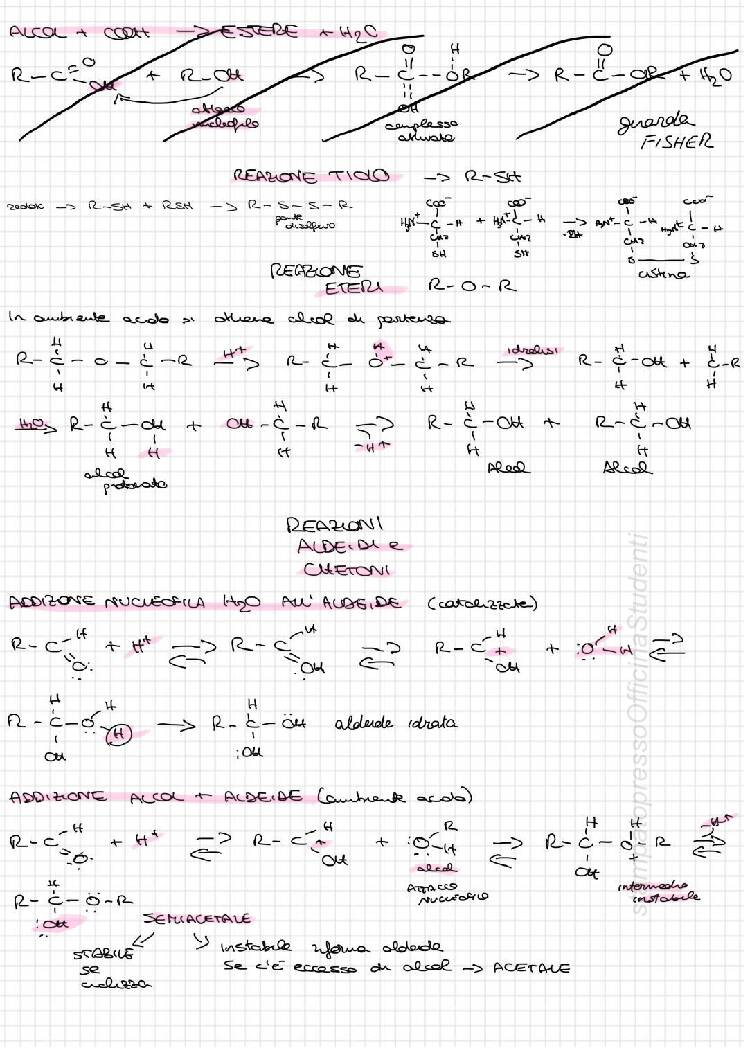 ALCOL + COOH → ESTERE + H2O
R - C = O OH + R - OH → R - C - OR → R - C - OR + H2O
O H O
OH
attacco nucleofilo
complesso attivato
guarda FISHER
REAZIONE TIOLO → R-SH
→ R-SH + RSH → R-S-S-R
ponte disolfuro
COO⁻ COO⁻ COO⁻ COO⁻
H3N⁺-C-H + H3N⁺-C-H → H3N⁺-C-H H3N⁺-C-H
CH2 CH2 -2H CH2 CH2
SH SH S S
cistina
REAZIONE
ETERI R-O-R
In ambiente acido si ottiene alcol di partenza
H H H H H H H
R-C-O-C-R H⁺→ R-C-O⁺-C-R idrolisi→ R-C-OH + C-R
H H H H H H
H H H H
H2O→ R-C-OH + OH-C-R → R-C-OH + R-C-OH
H H H -H⁺ H H
alcol protonato Alcol Alcol
REAZIONI
ALDEIDI e
CHETONI
ADDIZIONE NUCLEOFILA H2O ALL'ALDEIDE (catalizzata)
R-C H O + H⁺ ⇌ R-C H OH ⇌ R-C + H OH + O H H ⇌
H H H
R-C-O H → R-C-OH aldeide idrata
OH OH
ADDIZIONE ALCOL + ALDEIDE (ambiente acido)
R-C H O + H⁺ ⇌ R-C + H OH + O R H ⇌ R-C-O-R -H⁺ ⇌
H H
OH +
alcol
ATTACCO NUCLEOFILO
intermedio instabile
H
R-C-O-R
OH
SEMIACETALE
STABILE se ciclizza
Instabile riforma aldeide
Se c'è eccesso di alcol → ACETALE